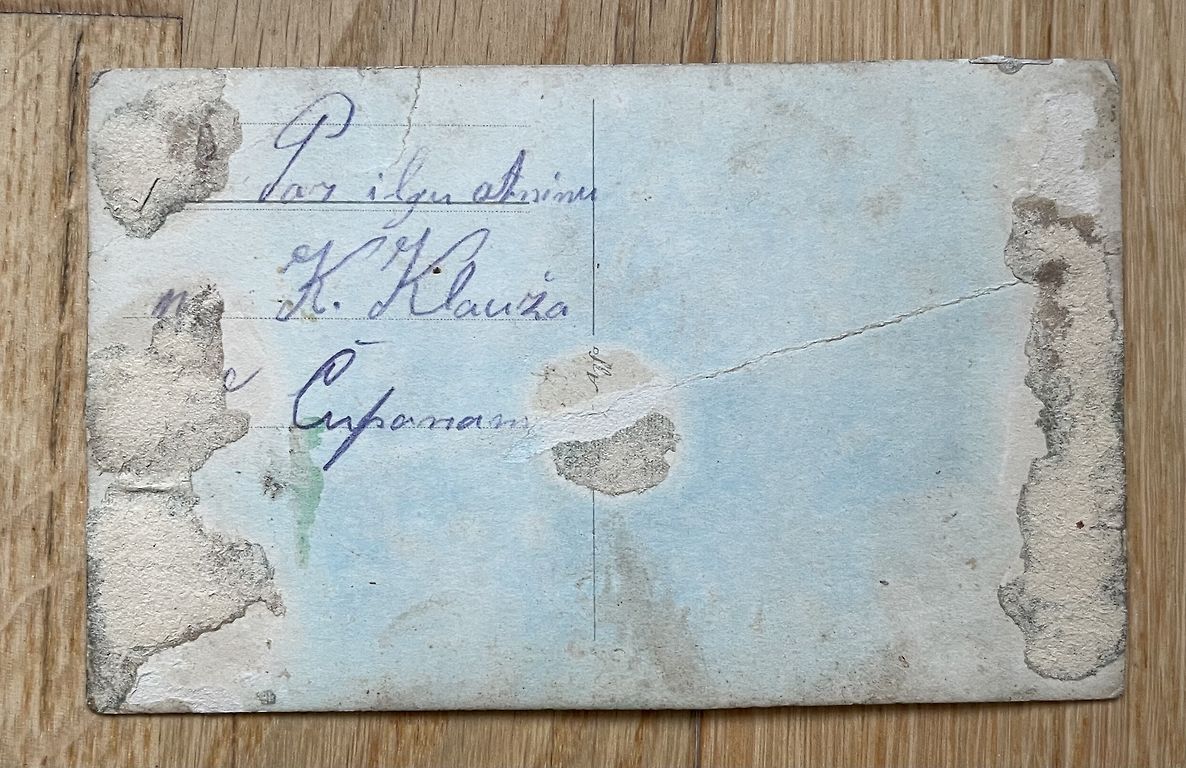 Par ilgu atminu
K. Klauža
Čupanam